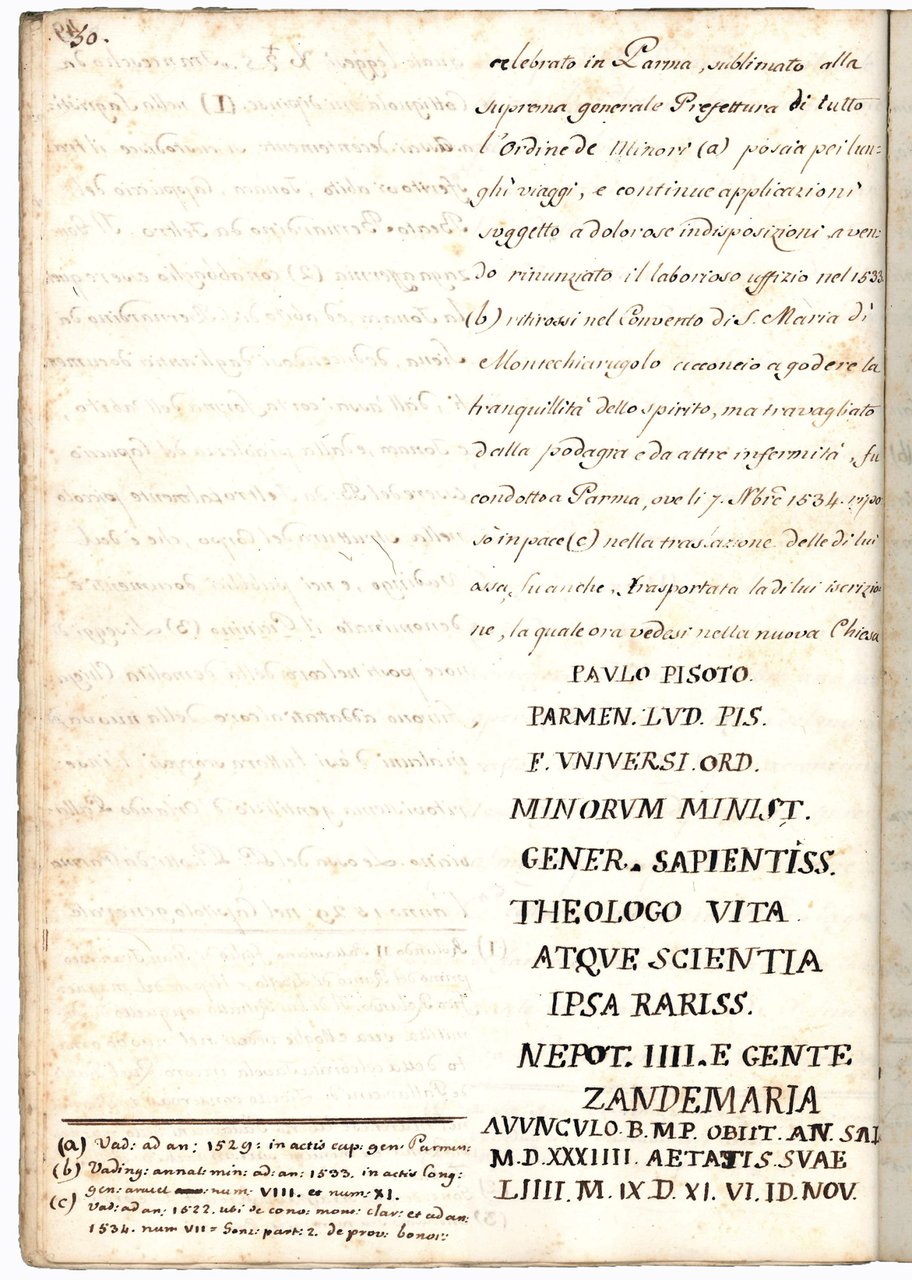 50.
celebrato in Parma, sublimato alla
suprema generale Prefettura di tutto
l'Ordine de Minori (a) poscia pei lun=
ghi viaggi, e continue applicazioni
soggetto a dolorose indisposizioni aven=
do rinunziato il laborioso uffizio nel 1533
(b) ritirossi nel Convento di S. Maria di
Montechiarugolo acconcio a godere la
tranquillità dello spirito, ma travagliato
dalla podagra e da altre infermità, fu
condotto a Parma, ove li 7. Nbre 1534. ripo
sò in pace (c) nella traslazione delle di lui
ossa, fu anche, trasportata la di lui iscrizio=
ne, la quale ora vedesi nella nuova Chiesa
PAVLO PISOTO.
PARMEN. LVD. PIS.
F. VNIVERSI. ORD.
MINORVM MINIST.
GENER. SAPIENTISS.
THEOLOGO VITA
ATQVE SCIENTIA
IPSA RARISS.
NEPOT. IIII. E GENTE
ZANDEMARIA
AVVNCVLO. B. M P. OBIIT. AN. SAL
M. D. XXXIIII. AETATIS. SVAE
LIIII. M. IX. D. XI. VI. ID. NOV.
(a) Vad: ad an: 1529: in actis cap: gen: Parmen:
(b) Vading: annal: min: ad: an: 1533. in actis Cong:
gen: num: VIII. et num: XI.
(c) Vad: ad an: 1522. ubi de conv: mon: clar: et ad an:
1534. num VII= Gonz: part: 2. de prov: bonon: